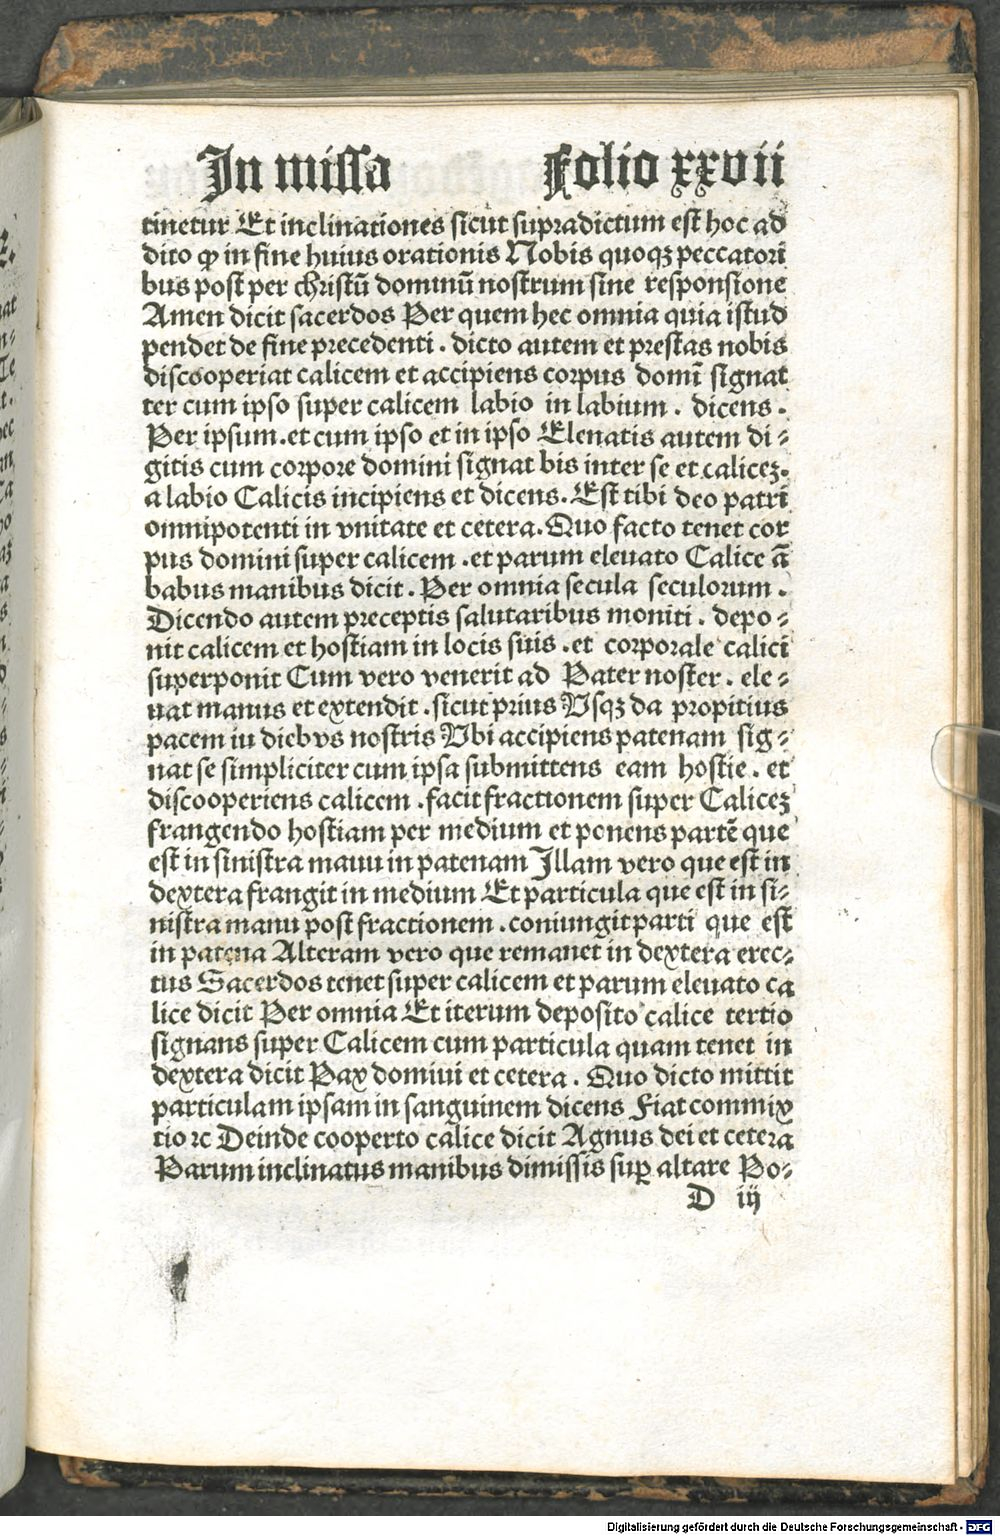 In missa Folio xxvii
tinetur Et inclinationes sicut supradictum est hoc ad
dito ꝙ in fine huius orationis Nobis quoqꝫ peccatori
bus post per christū dominū nostrum sine responsione
Amen dicit sacerdos Per quem hec omnia quia istud
pendet de fine precedenti . dicto autem et prestas nobis
discooperiat calicem et accipiens corpus domī signat
ter cum ipso super calicem labio in labium . dicens .
Per ipsum .et cum ipso et in ipso Elenatis autem di⸗
gitis cum corpore domini signat bis inter se et caliceꝫ.
a labio Calicis incipiens et dicens. Est tibi deo patri
omnipotenti in vnitate et cetera. Quo facto tenet cor
pus domini super calicem .et parum eleuato Calice ā
babus manibus dicit . Per omnia secula seculorum .
Dicendo autem preceptis salutaribus moniti . depo⸗
nit calicem et hostiam in locis suis .et corporale calici
superponit Cum vero venerit ad Pater noster . ele⸗
uat manus et extendit .sicut prius Vsqꝫ da propitius
pacem iu diebvs nostris Vbi accipiens patenam sig⸗
nat se simpliciter cum ipsa submittens eam hostie . et
discooperiens calicem .facit fractionem super Caliceꝫ
frangendo hostiam per medium et ponens partē que
est in sinistra mauu in patenam Illam vero que est in
dextera frangit in medium Et particula que est in si⸗
nistra manu post fractionem .coniungit parti que est
in patena Alteram vero que remanet in dextera erec⸗
tus Sacerdos tenet super calicem et parum eleuato ca
lice dicit Per omnia Et iterum deposito calice tertio
signans super Calicem cum particula quam tenet in
dextera dicit Pax domiui et cetera . Quo dicto mittit
particulam ipsam in sanguinem dicens Fiat commix
tio ⁊c Deinde cooperto calice dicit Agnus dei et cetera
Parum inclinatus manibus dimissis suꝑ altare Po⸗
D iij
Digitalisierung gefördert durch die Deutsche Forschungsgemeinschaft - DFG